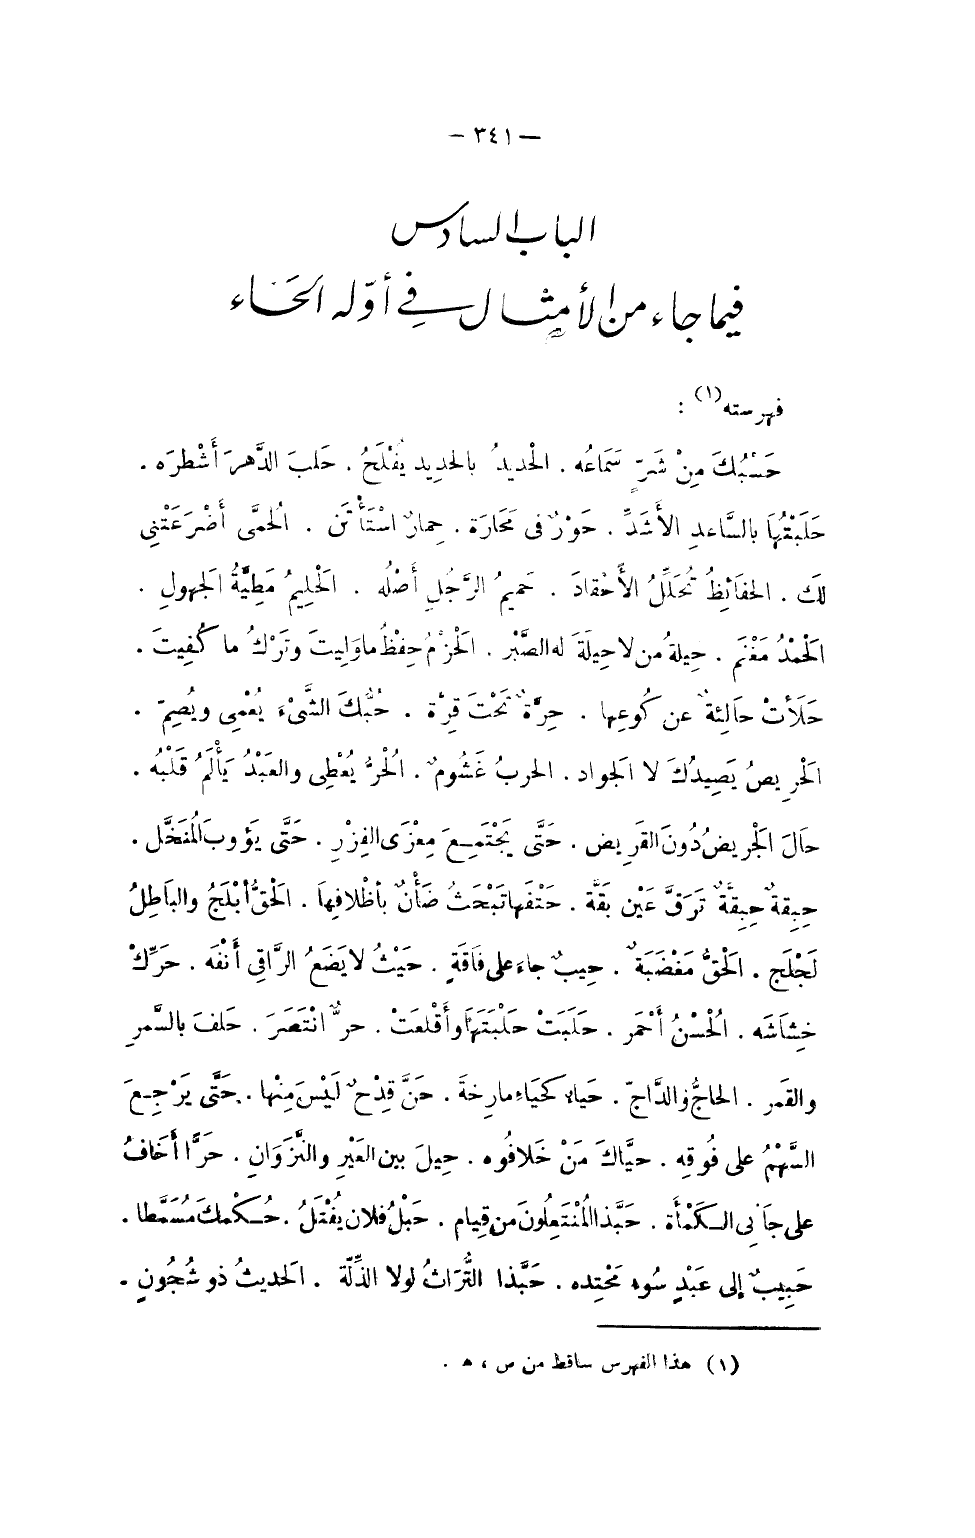 — ٣٤١ —
الباب السادس
فيما جاء من الأمثال في أوّله الحَاء
فهرسته (١) :
حَسْبُكَ مِنْ شَرٍّ سَمَاعُه . الْحديدُ بالحديد يُفْلَحُ . حَلبَ الدَّهرَ أَشْطرَه .
حَلَبْتُهَا بالسَّاعدِ الأَشَدِّ . حَوْرٌ فى مَحَارَة . حِمارٌ اسْتَأْتَن . الْحمَّى أَضْرَعَتْنِى
لَكَ . الحفَائظُ تُحَلِّلُ الأَحْقادَ . حَميمُ الرَّجُلِ أَصْلُه . الْحَلِيمُ مَطِيَّةُ الجهولِ .
الْحَمْدُ مَغْنَم . حِيلةُ من لا حِيلَةَ له الصَّبْر . الْحَزْمُ حِفْظُ ما وَلِيتَ وتَرْكُ ما كُفِيتَ .
حَلَأتْ حَالِئةٌ عن كُوعِها . حِرَّةٌ تَحْتَ قِرَّة . حُبُّكَ الشَّىْءَ يُعْمِى ويُصِمّ .
الْحَرِيصُ يَصِيدُكَ لا الْجواد . الحربُ غَشُومٌ . الْحُرُّ يُعْطِى والعَبْدُ يَأْلَمُ قَلْبُه .
حَالَ الْجرِيضُ دُونَ القَرِيض . حَتَّى يَجْتَمِعَ مِعْزَى الفِزْرِ . حَتَّى يَؤوبَ الْمُنَخَّل .
حِبِقةٌ حِبِقَّةٌ تَرَقَّ عَيْنَ بَقَّة . حَتْفَها تَبْحَثُ ضَأْنٌ بأظْلافِها . الْحَقُّ أبْلَجُ والبَاطِلُ
لَجْلَج . الْحَقُّ مَغْضَبَةٌ . حبيبٌ جاءَ على فَاقَةٍ . حَيْثُ لا يَضَعُ الرَّاقِى أَنْفَه . حَرِّكْ
خِشَاشَه . الْحُسْنُ أَحْمَر . حَلَبَتْ حَلْبَتَهَا وأَقْلعَتْ . حرٌّ انْتَصَرَ . حَلفَ بالسَّمرِ
والقمَر . الحاجُّ والدَّاجّ . حَياءٌ كَحَياءِ مارِخَةَ . حَنَّ قِدْحٌ لَيْسَ مِنْها . حَتَّى يَرْجِعَ
السَّهْمُ على فُوقِه . حيَّاكَ مَنْ خَلا فُوه . حِيلَ بين العَيْرِ والنَّزَوَانِ . حَرًّا أَخَافُ
على جَانِى الكَمْأَة . حَبَّذا الْمُنْتَعِلُونَ من قِيام . حَبْلُ فلان يُفْتَلُ . حُكْمكَ مُسَمَّطا .
حَبِيبٌ إلى عَبْدٍ سُوء مَحْتِده . حَبَّذا التُّرَاثُ لولا الذِّلَّة . الْحديثُ ذو شُجُونٍ .
(١) هذا الفهرس ساقط من ص ، ه .